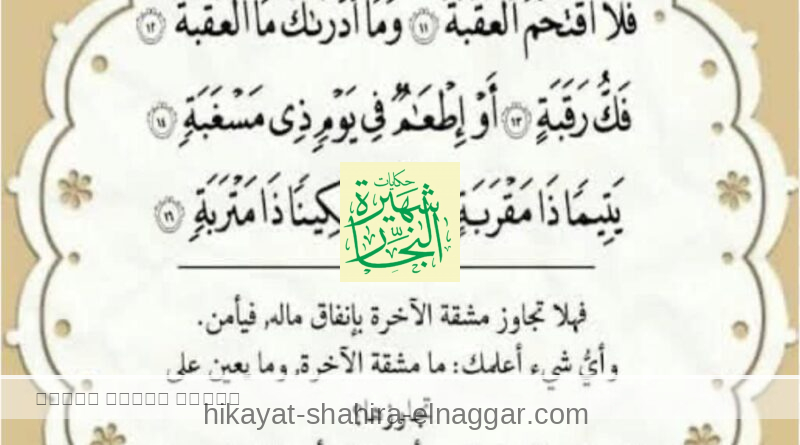 فَلَا ٱقۡتَحَمَ ٱلۡعَقَبَةَ ١١ وَمَآ أَدۡرَىٰكَ مَا ٱلۡعَقَبَةُ ١٢
فَكُّ رَقَبَةٍ ١٣ أَوۡ إِطۡعَٰمٞ فِي يَوۡمٖ ذِي مَسۡغَبَةٖ ١٤
يَتِيمٗا ذَا مَقۡرَبَةٍ كِينٗا ذَا مَتۡرَبَةٖ ١٦
حكايات
شهيرة
النجار
فهلا تجاوز مشقة الآخرة بإنفاق ماله, فيأمن.
وأيُّ شيء أعلمك: ما مشقة الآخرة, وما يعين على
تجاوزها؟
hikayat-shahira-elnaggar.com